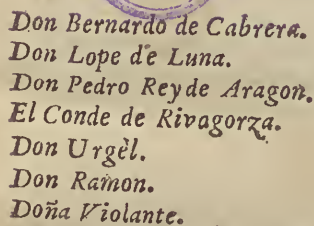 Don Bernardo de Cabrera.
Don Lope de Luna.
Don Pedro Rey de Aragon.
El Conde de Rivagorza.
Don Urgèl.
Don Ramon.
Doña Violante.